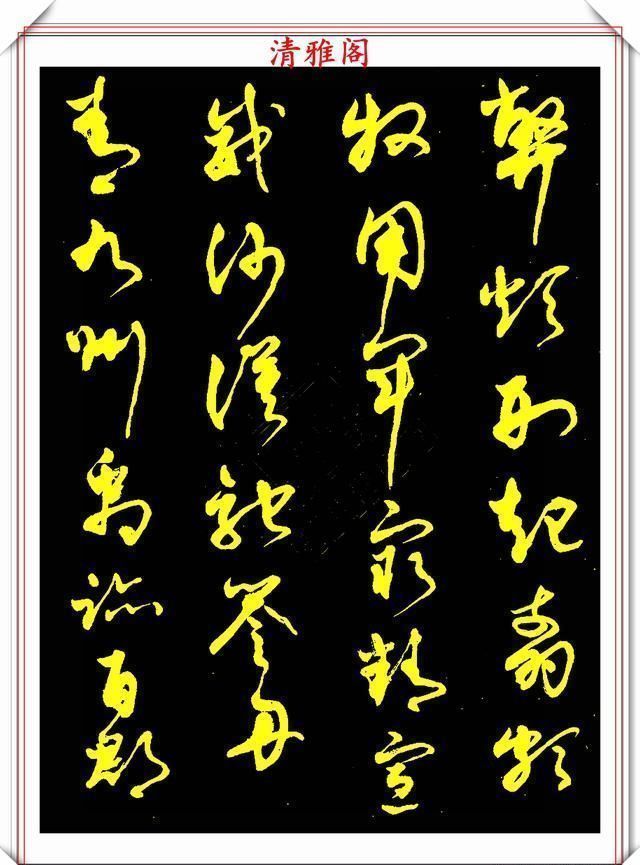 清雅阁
弊煩刑起翦頗
牧用軍最精宣
威沙漠馳譽丹
青九州禹跡百郡